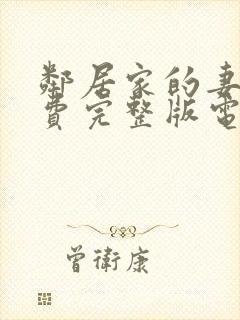 鄰居家的妻
費完整版電
曾衛康